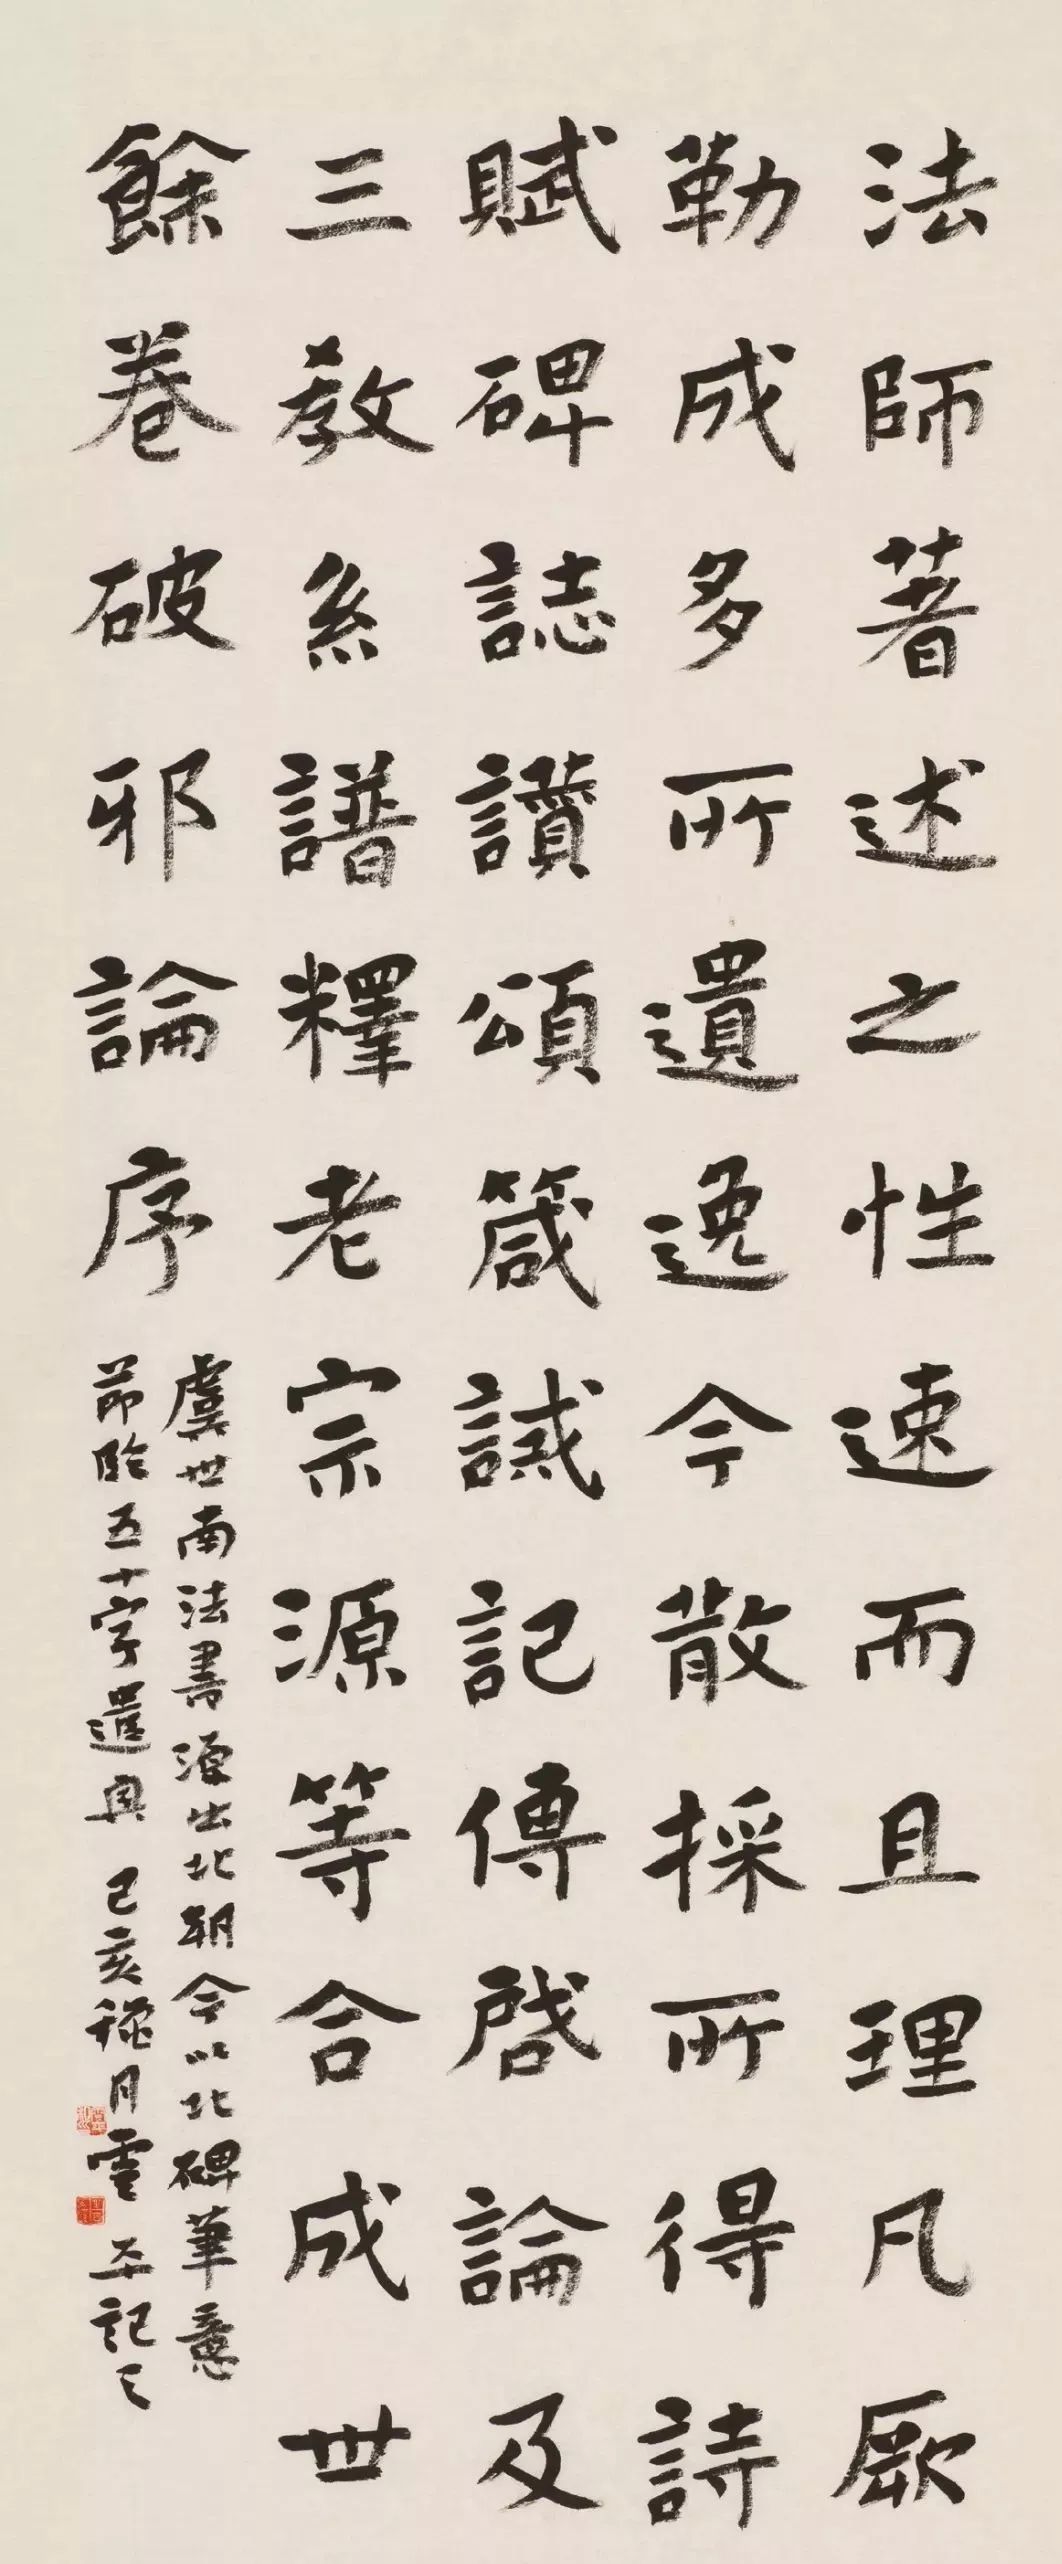 法師著述之性速而且理凡厥
勒成多所遺逸今散採所得詩
賦碑誌讚頌箴誡記傳啓論及
三教系譜釋老宗源等合成世
餘卷破邪論序
虞世南法書源出北朝今以北碑筆意
節臨五十字遣興 己亥穐月雲平記之